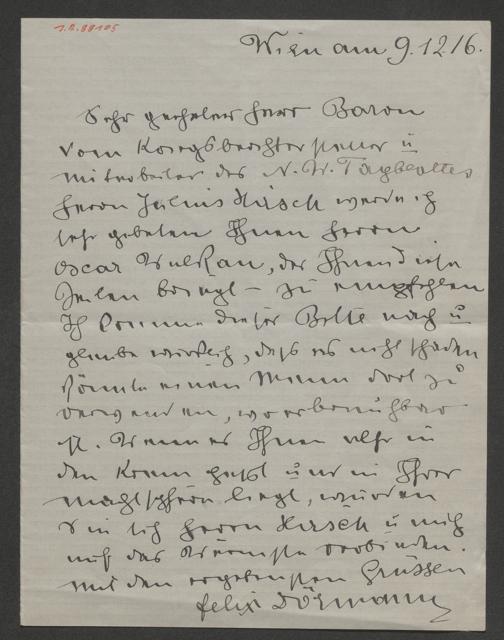 I.N.88105
Wien am 9.12.16.
Sehr geehrter Herr Baron
vom Kriegsberichterstatter u
mitarbeiter des N. W. Tagblattes
Herrn Julius Hirsch werde ich
sehr gebeten Ihnen Herrn
Oscar Wulkan, der Ihnen diese
Zeilen bringt – zu empfehlen
Ich komme dieser Bitte nach u
glaube wirklich, dass es nicht schaden
könnte einen Mann dort zu
verwenden, wo er brauchbar
ist. Wenn es Ihnen also in
den Kram passt und in Ihrer
machtsphäre liegt, würden
Sie sich Herrn Hirsch u mich
auf das Wärmste verbinden.
mit den ergebensten Grüssen
Felix Dörmann